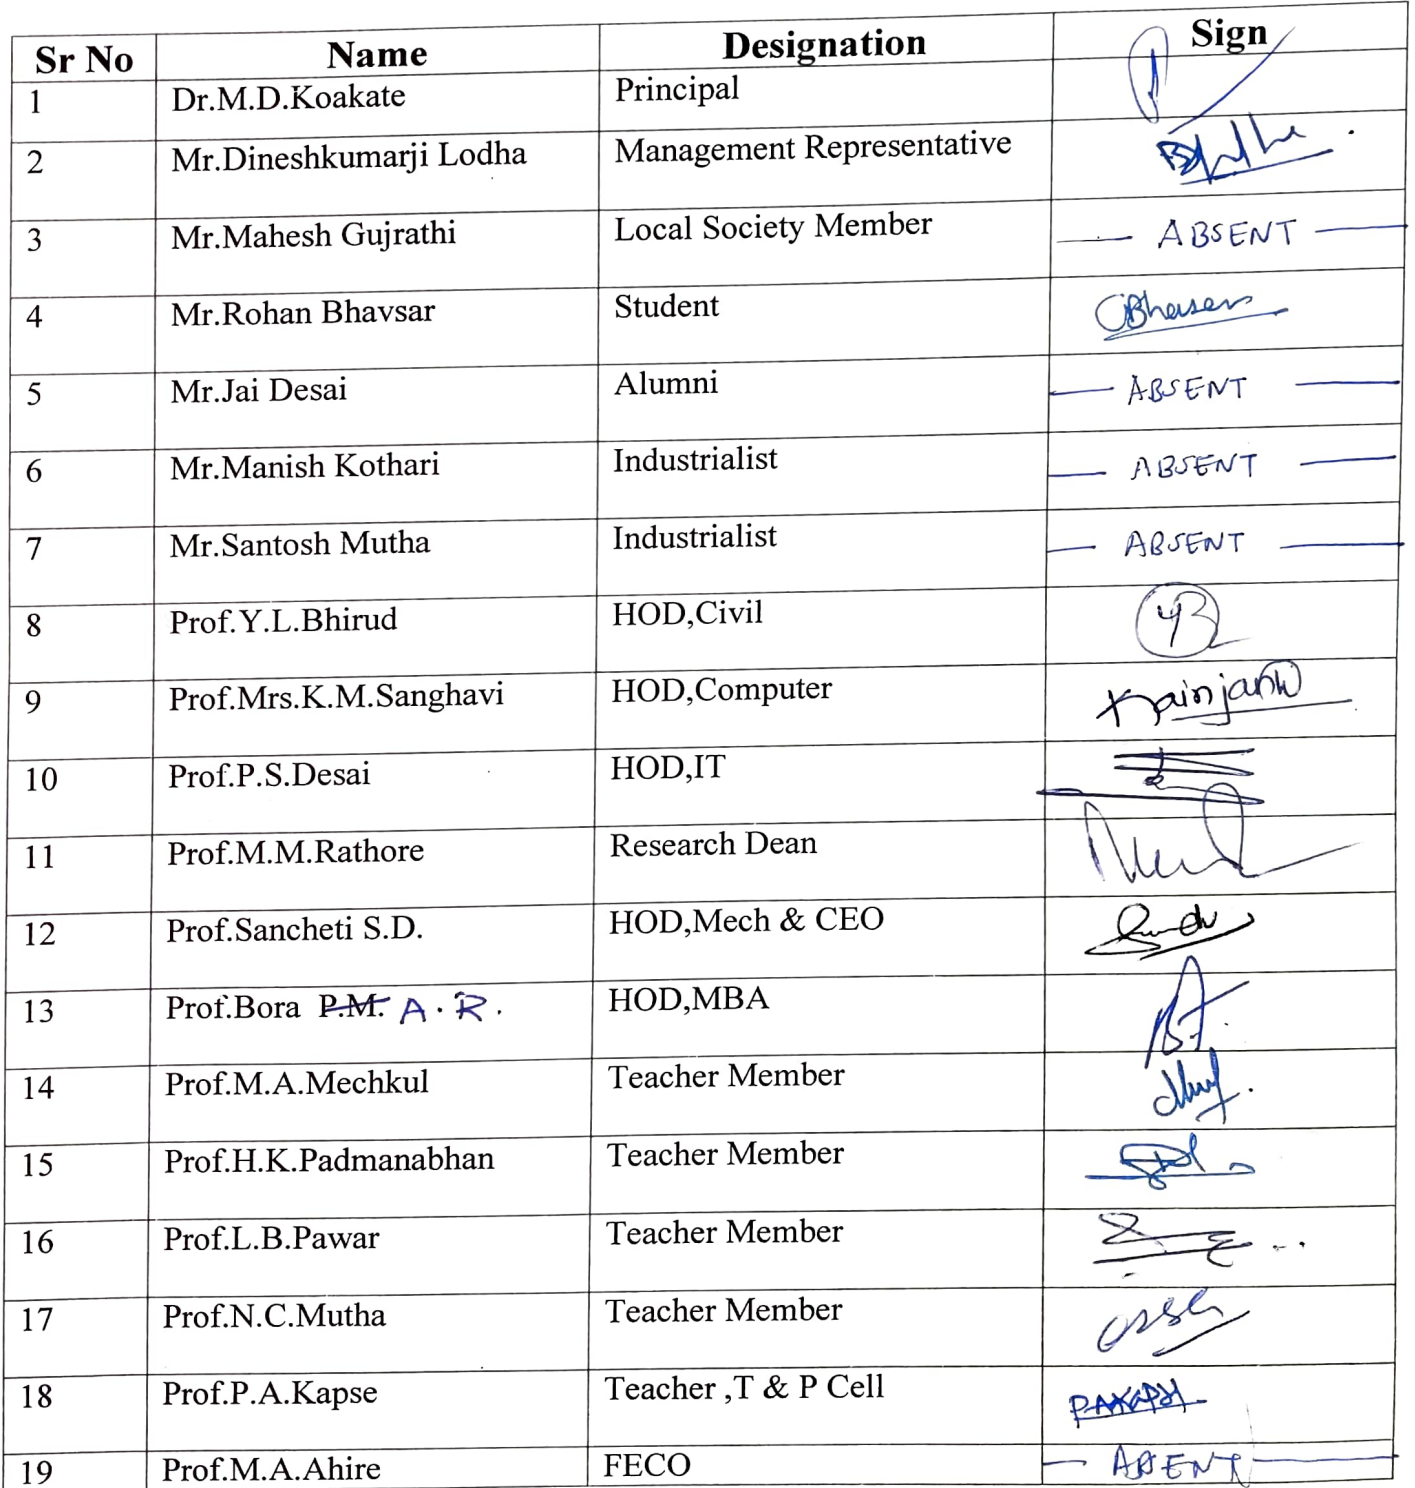 Sr No Name Designation Sign
1 Dr.M.D.Koakate Principal
2 Mr.Dineshkumarji Lodha Management Representative
3 Mr.Mahesh Gujrathi Local Society Member ABSENT
4 Mr.Rohan Bhavsar Student
5 Mr.Jai Desai Alumni ABSENT
6 Mr.Manish Kothari Industrialist ABSENT
7 Mr.Santosh Mutha Industrialist ABSENT
8 Prof.Y.L.Bhirud HOD,Civil
9 Prof.Mrs.K.M.Sanghavi HOD,Computer
10 Prof.P.S.Desai HOD,IT
11 Prof.M.M.Rathore Research Dean
12 Prof.Sancheti S.D. HOD,Mech & CEO
13 Prof.Bora P.M. A.R. HOD,MBA
14 Prof.M.A.Mechkul Teacher Member
15 Prof.H.K.Padmanabhan Teacher Member
16 Prof.L.B.Pawar Teacher Member
17 Prof.N.C.Mutha Teacher Member
18 Prof.P.A.Kapse Teacher ,T & P Cell PAKAPSE
19 Prof.M.A.Ahire FECO ABSENT